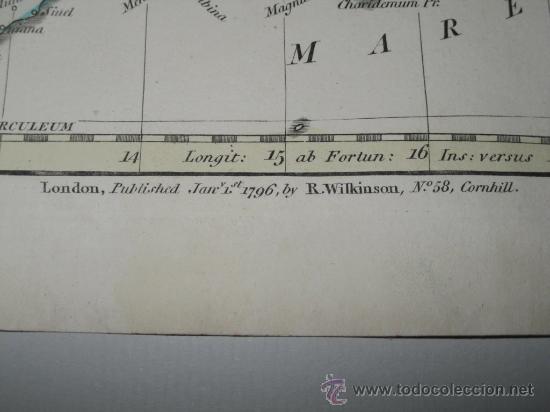 Sinel
Charidemum Pr.
M A R E
RCULEUM
14 Longit: 15 ab Fortun: 16 Ins: versus
London, Published Jany. 1st. 1796, by R. Wilkinson, No. 58, Cornhill.
todocoleccion
www.todocoleccion.net